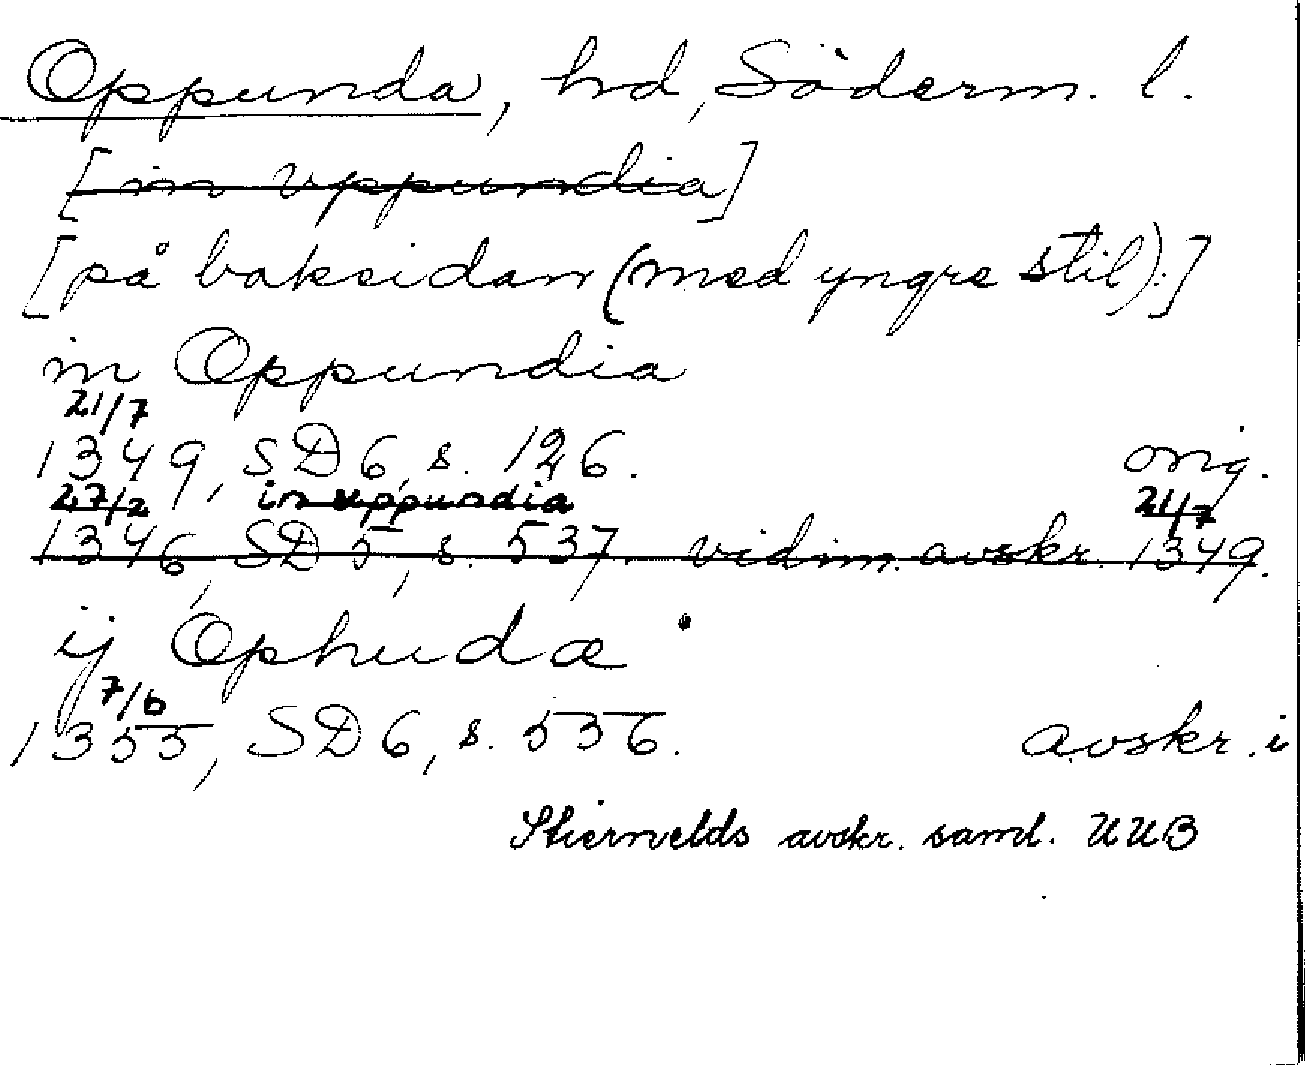 Oppunda, hd, Söderm. l.
[in vppundia]
[på baksidan (med yngre stil):]
in Oppundia
21/7
1349, SD 6, s. 126. orig.
27/2 in uppundia 21/7
1346, SD 5, s. 537. vidim. avskr. 1349.
ij Ophudæ
7/6
1355, SD 6, s. 536. avskr. i
Stiernelds avskr. saml. UUB